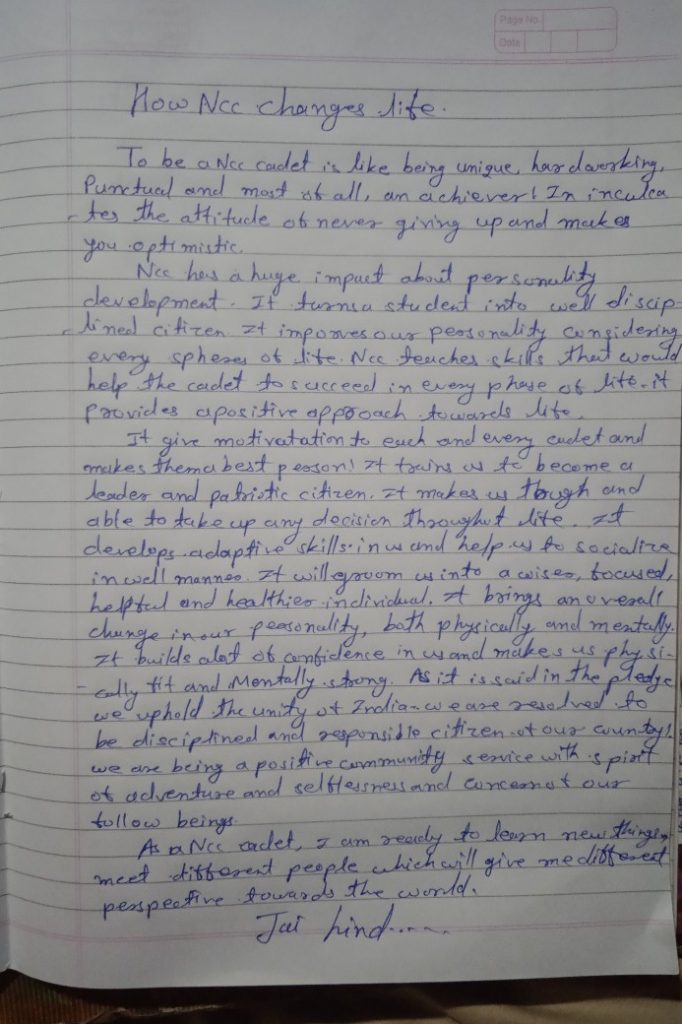 Page No.
Date
How Ncc changes life.
To be a Ncc cadet is like being unique, hardworking,
Punctual and most of all, an achiever! In inculca
tes the attitude of never giving up and makes
you optimistic.
Ncc has a huge impact about personality
development. It turns a student into well discip-
lined citizen It imporves our personality considering
every spheres of life. Ncc teaches skills that would
help the cadet to succeed in every phase of life. it
provides a positive approach towards life.
It give motivatation to each and every cadet and
makes them a best person! It trains us to become a
leader and patriotic citizen. It makes us though and
able to take up any decision throughut life. It
develops adaptive skills in us and help us to socialize
in well manner. It will groom us into a wiser, focused,
helpful and healthier individual. It brings an overall
change in our personality, both physically and mentally.
It builds alot of confidence in us and makes us physi-
cally fit and Mentally strong. As it is said in the pledge
we uphold the unity of India- we are resolved to
be disciplined and responsible citizen of our country!
we are being a positive community service with spirit
of adventure and selflessness and concern of our
follow beings.
As a Ncc cadet, I am ready to learn new things,
meet different people which will give me different
perspective towards the world.
Jai hind.....